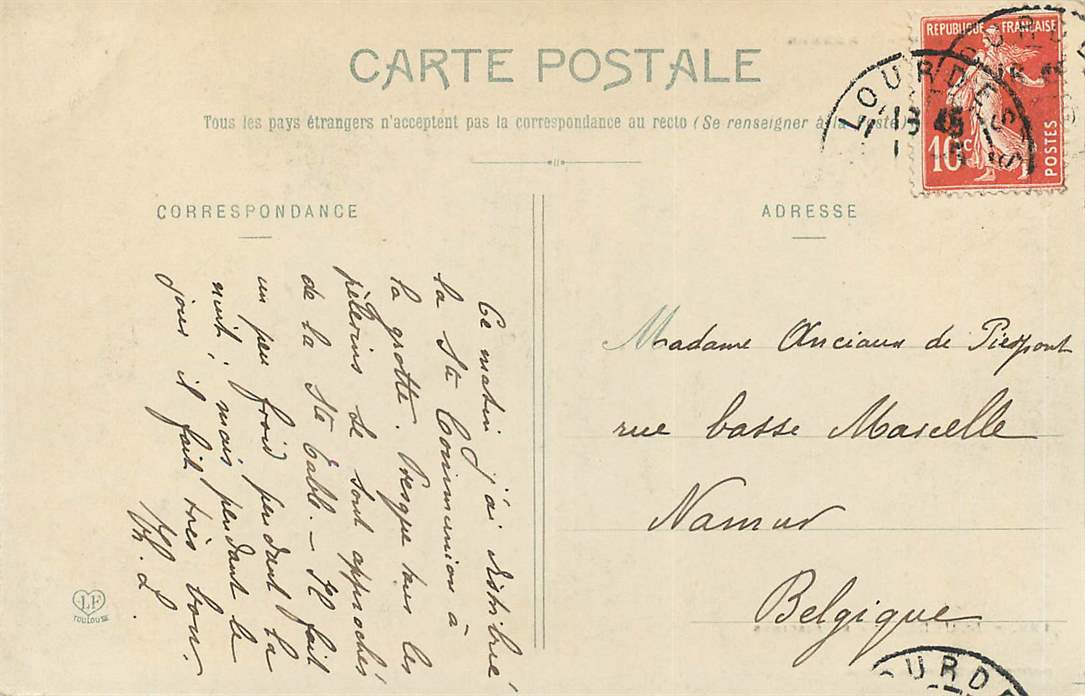 CARTE POSTALE
Tous les pays étrangers n'acceptent pas la correspondance au recto (Se renseigner à la Poste)
REPUBLIQUE FRANÇAISE
10c
POSTES
LOURDES
CORRESPONDANCE
Ce matin j'ai distribué
la Ste Communion à
la grotte. Presque tous les
pèlerins se sont approchés
de la Ste Table. - Il fait
un peu froid pendant la
nuit; mais pendant le
jour il fait très bon.
LF
TOULOUSE
ADRESSE
Madame Anciaux de Pierpont
rue basse Marcelle
Namur
Belgique
LOURD